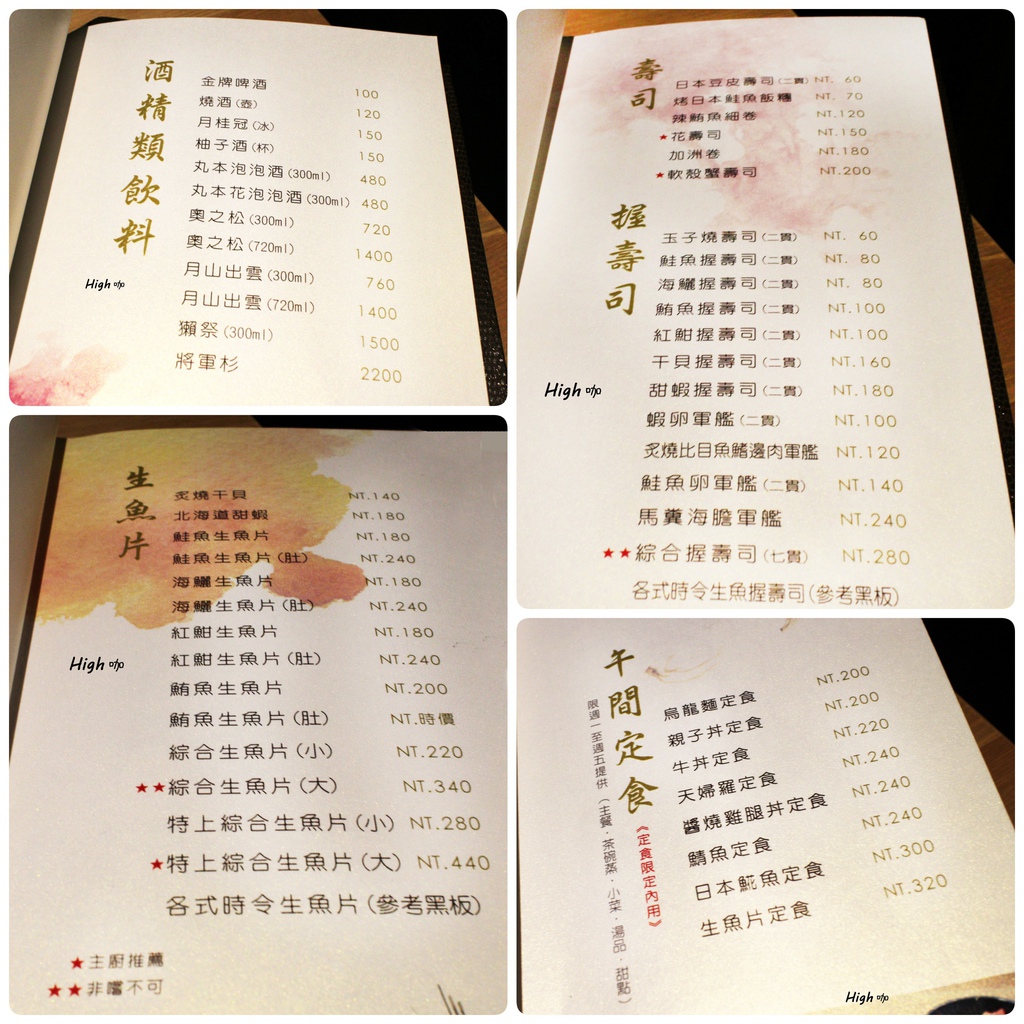 酒精類飲料
金牌啤酒 100
燒酒(壺) 120
月桂冠(冰) 150
柚子酒(杯) 150
丸本泡泡酒(300ml) 480
丸本花泡泡酒(300ml) 480
奧之松(300ml) 720
奧之松(720ml) 1400
月山出雲(300ml) 760
月山出雲(720ml) 1400
獺祭(300ml) 1500
將軍杉 2200
High 咖
壽司
日本豆皮壽司(二貫) NT. 60
烤日本鮭魚飯糰 NT. 70
辣鮪魚細卷 NT.120
★花壽司 NT.150
加洲卷 NT.180
★軟殼蟹壽司 NT.200
握壽司
玉子燒壽司(二貫) NT. 60
鮭魚握壽司(二貫) NT. 80
海鱺握壽司(二貫) NT. 80
鮪魚握壽司(二貫) NT.100
紅魽握壽司(二貫) NT.100
干貝握壽司(二貫) NT.160
甜蝦握壽司(二貫) NT.180
蝦卵軍艦(二貫) NT.100
炙燒比目魚鰭邊肉軍艦 NT.120
鮭魚卵軍艦(二貫) NT.140
馬糞海膽軍艦 NT.240
★★綜合握壽司(七貫) NT.280
各式時令生魚握壽司(參考黑板)
High 咖
生魚片
炙燒干貝 NT.140
北海道甜蝦 NT.180
鮭魚生魚片 NT.180
鮭魚生魚片(肚) NT.240
海鱺生魚片 NT.180
海鱺生魚片(肚) NT.240
紅魽生魚片 NT.180
紅魽生魚片(肚) NT.240
鮪魚生魚片 NT.200
鮪魚生魚片(肚) NT.時價
綜合生魚片(小) NT.220
★★綜合生魚片(大) NT.340
特上綜合生魚片(小) NT.280
★特上綜合生魚片(大) NT.440
各式時令生魚片(參考黑板)
★主廚推薦
★★非嚐不可
High 咖
午間定食
《定食限定內用》
限週一至週五提供(主餐．茶碗蒸．小菜．湯品．甜點)
烏龍麵定食 NT.200
親子丼定食 NT.200
牛丼定食 NT.220
天婦羅定食 NT.240
醬燒雞腿丼定食 NT.240
鯖魚定食 NT.240
日本鯱魚定食 NT.300
生魚片定食 NT.320
High 咖